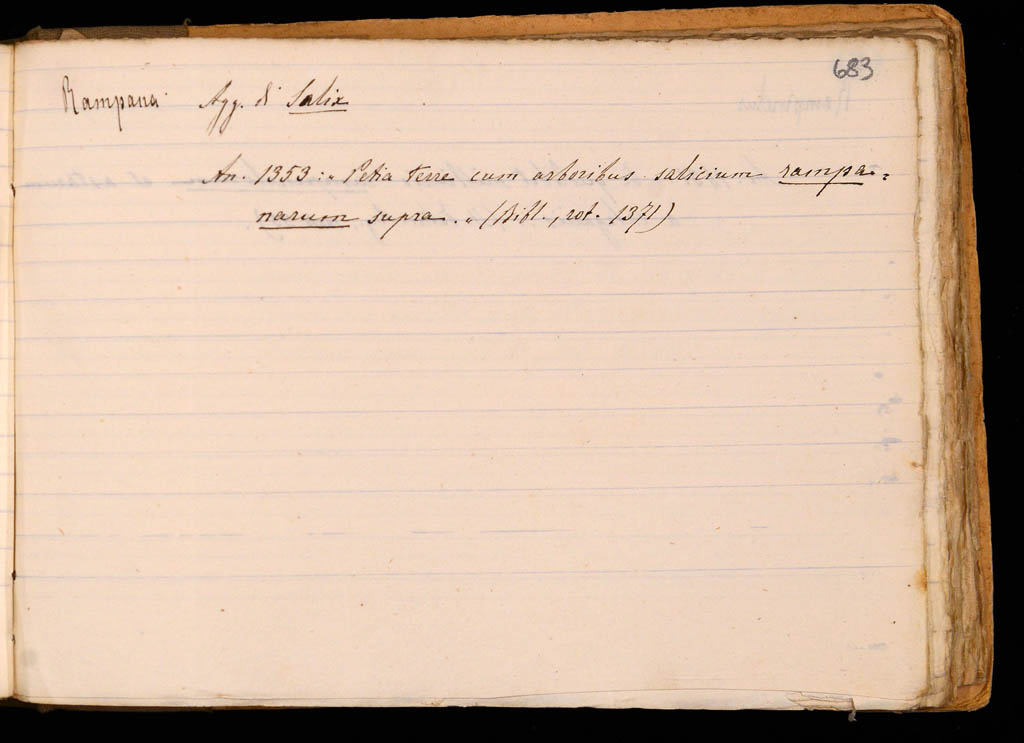 683
Rampana Agg. di Salix
An. 1353: « Petia terre cum arboribus salicium rampa=
narum supra. » (Bibl., rot. 1371)